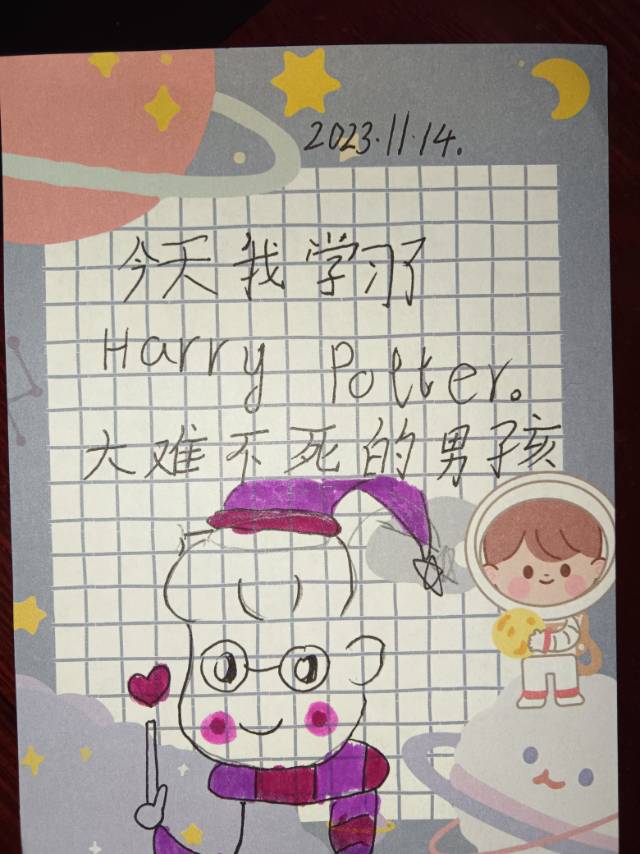 2023.11.14.
今天我学习了
Harry Potter。
大难不死的男孩